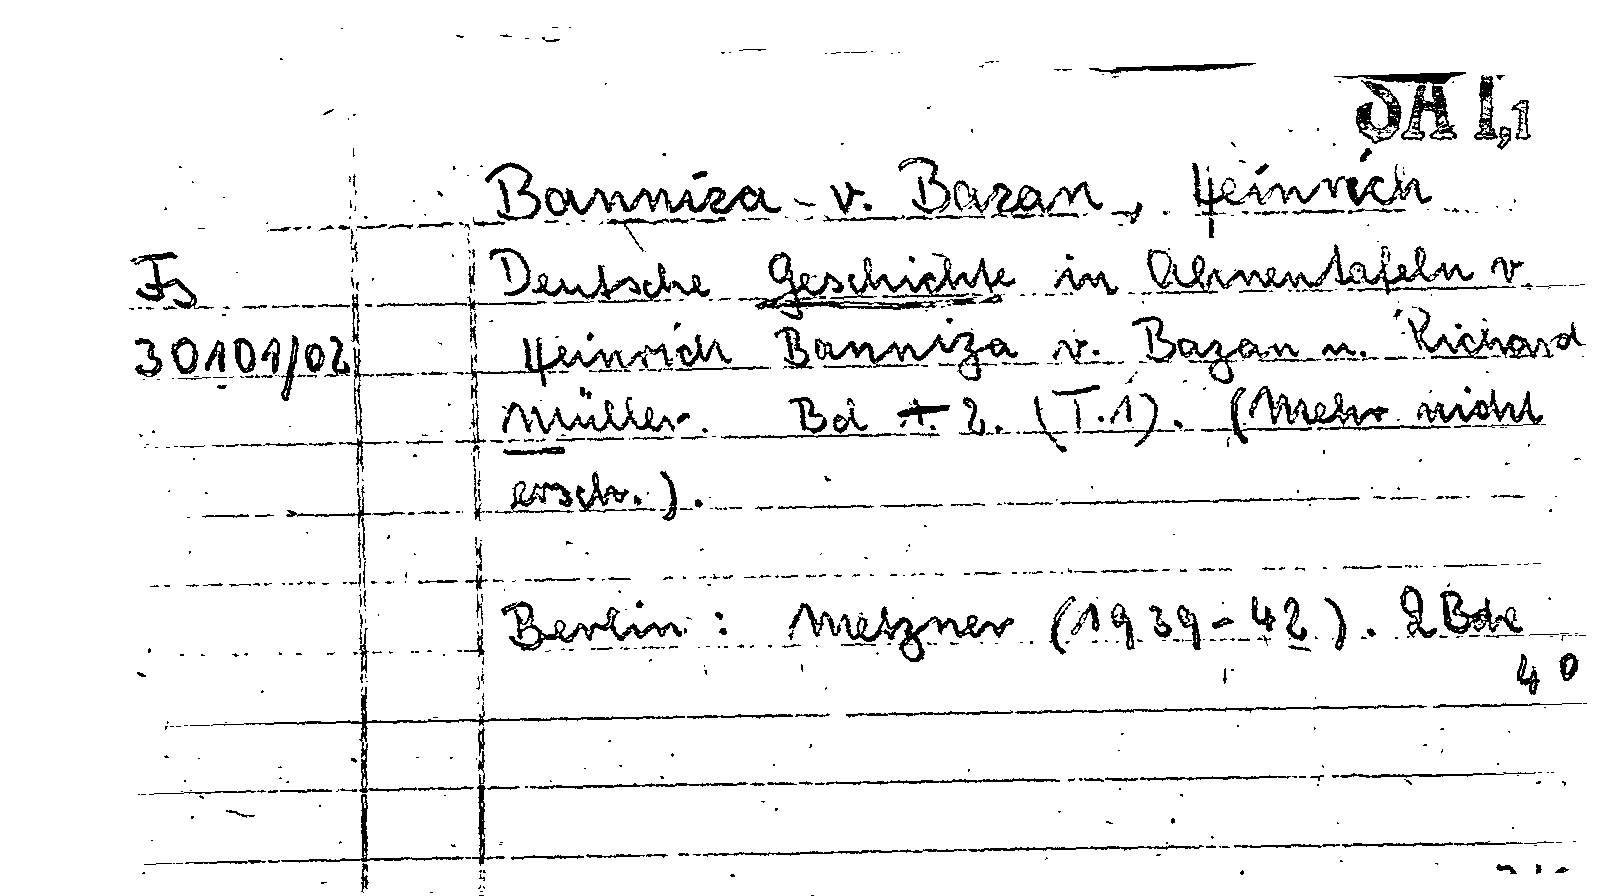 JA I,1
Banniza - v. Bazan, Heinrich
Fs Deutsche Geschichte in Ahnentafeln v.
30101/02 Heinrich Banniza v. Bazan u. Richard
Müller. Bd 1. 2. (T.1). (Mehr nicht
ersch.).
Berlin: Metzner (1939-42). 2 Bde
4°